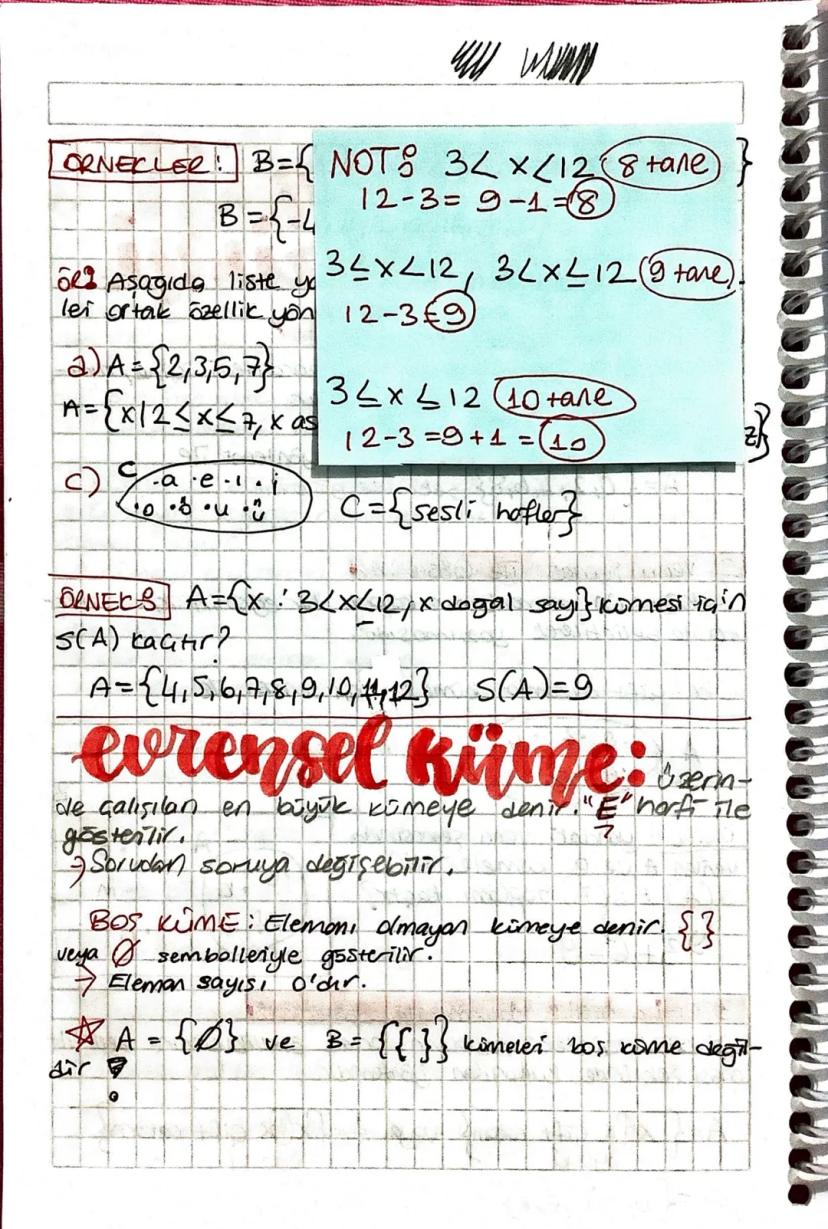 ÖRNEKLER: B={
B={-4
NOT: 3< x<12 8 tane }
12-3= 9-1=8
3≤x<12, 3<x≤12 9 tane
12-3=9
3≤x≤12 10 tane
12-3=9+1=10
ör: Aşagıda liste yö
leri ortak özellik yön
a) A={2,3,5,7}
A={x|2≤x≤7, x as
z}}
c) C .a .e .ı .i
.o .ö .u .ü
C={sesli hafler}
ÖRNEK: A={x : 3<x≤12, x doğal sayı} kümesi için
S(A) kaçtır?
A={4,5,6,7,8,9,10,11,12} S(A)=9
evrensel küme: üzerin-
de çalışılan en büyük kümeye denir. "E" harfi ile
gösterilir.
→ Sorudan soruya değişebilir.
BOŞ KÜME: Elemanı olmayan kümeye denir. { }
veya Ø sembolleriyle gösterilir.
→ Eleman sayısı 0'dır.
☆ A = {Ø} ve B= {{ }} kümeleri boş küme değil-
dir !